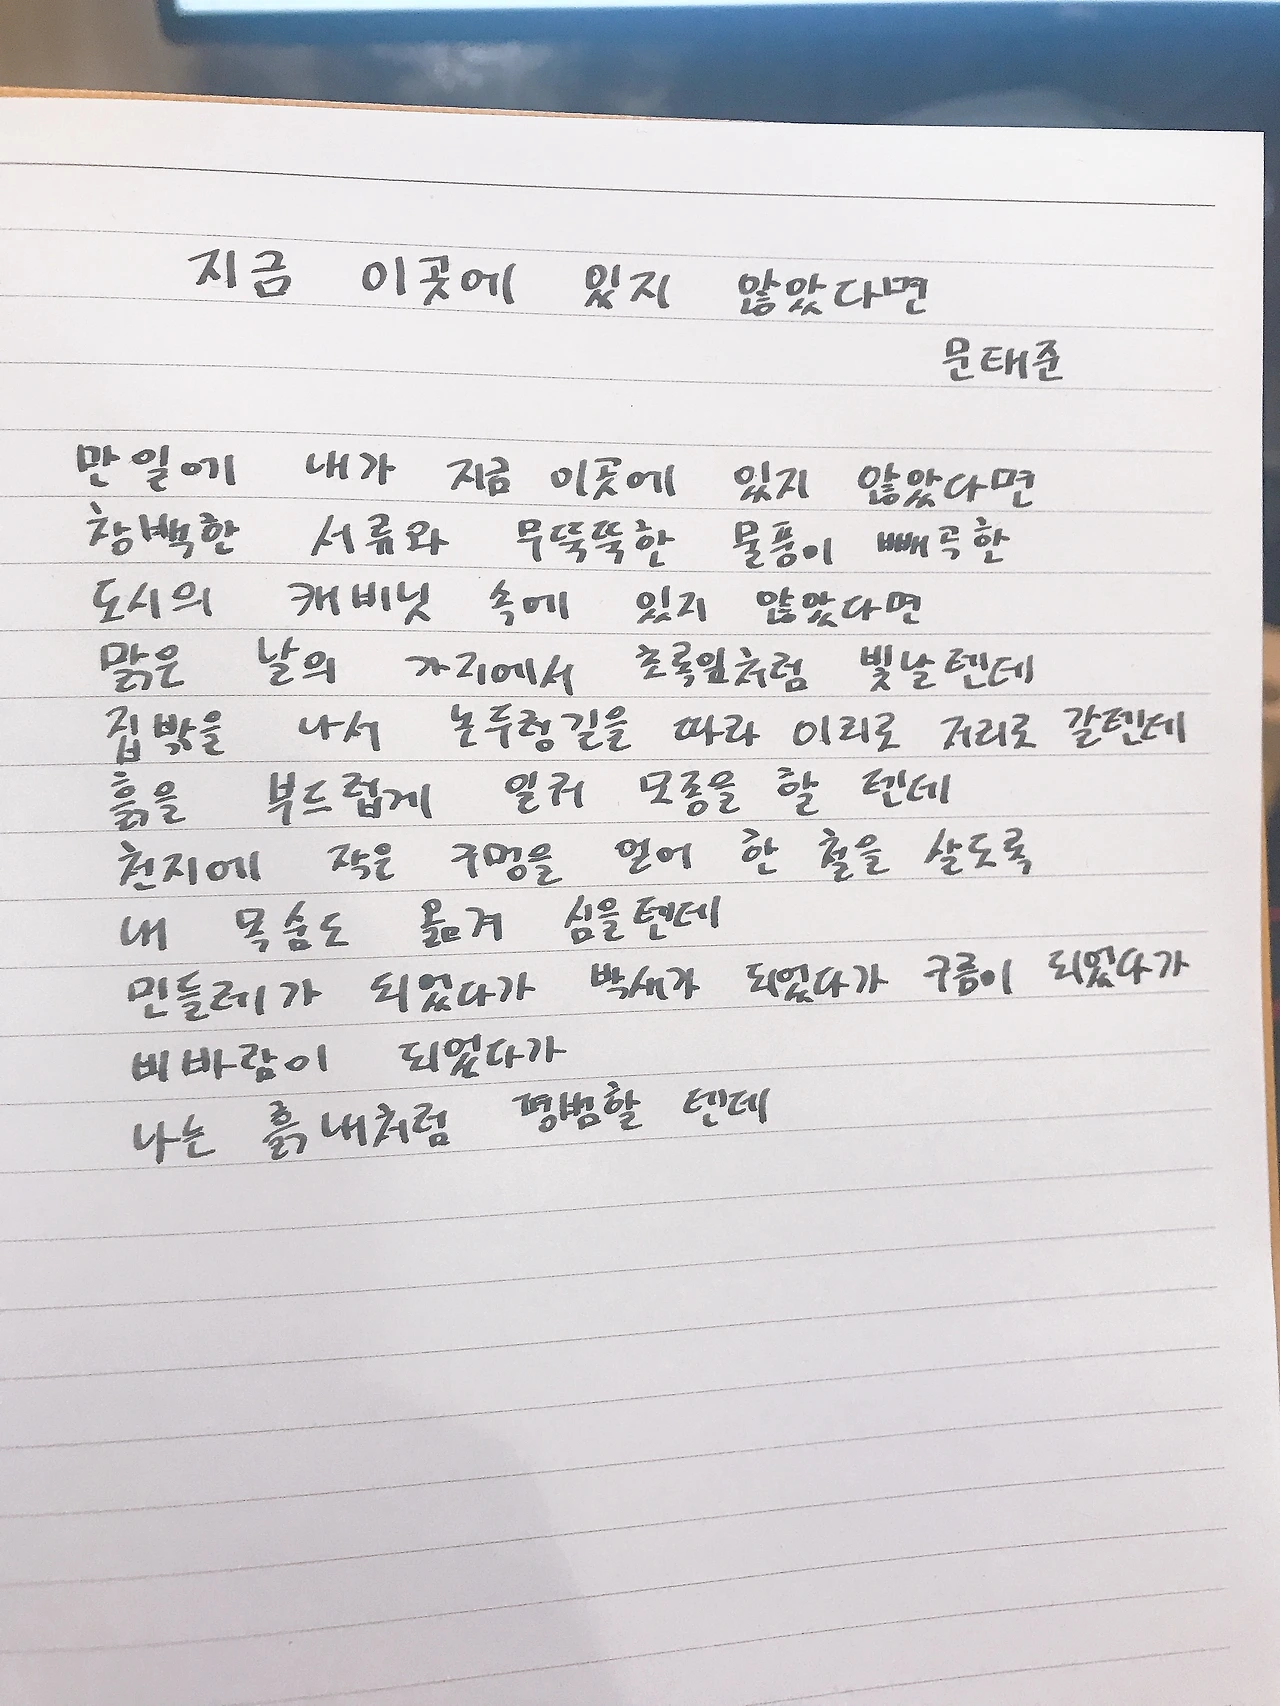 지금 이곳에 있지 않았다면
문태준
만일에 내가 지금 이곳에 있지 않았다면
창백한 서류와 무뚝뚝한 물품이 빼곡한
도시의 캐비닛 속에 있지 않았다면
맑은 날의 가지에서 초록잎처럼 빛날텐데
집밖을 나서 논두렁길을 따라 이리로 저리로 갈텐데
흙을 부드럽게 일궈 모종을 할 텐데
천지에 작은 구멍을 얻어 한 철을 살도록
내 목숨도 옮겨 심을텐데
민들레가 되었다가 박새가 되었다가 구름이 되었다가
비바람이 되었다가
나는 흙내처럼 평범할 텐데